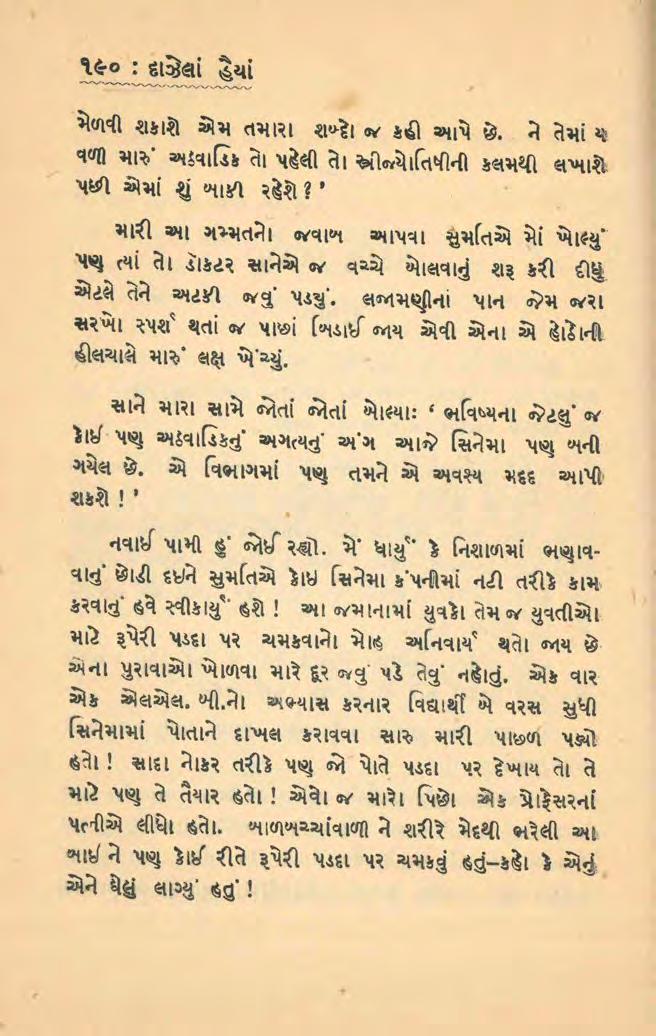 ૧૯૦ : દાઝેલાં હૈયાં
મેળવી શકાશે એમ તમારા શબ્દો જ કહી આપે છે. ને તેમાં ય
વળી મારું અઠવાડિક તો પહેલી તો સ્ત્રીજ્યોતિષીની કલમથી લખાશે
પછી એમાં શું બાકી રહેશે ? '
મારી આ ગમ્મતનો જવાબ આપવા સુમતિએ મોં ખોલ્યું
પણ ત્યાં તો ડૉકટર સાનેએ જ વચ્ચે બોલવાનું શરૂ કરી દીધુ
એટલે તેને અટકી જવું પડ્યું. લજામણીનાં પાન જેમ જરા
સરખો સ્પર્શ થતાં જ પાછાં બિડાઈ જાય એવી એના એ હોઠોની
હીલચાલે મારું લક્ષ ખેંચ્યું.
સાને મારા સામે જોતાં જોતાં બોલ્યાઃ ‘ ભવિષ્યના જેટલું જ
કોઈ પણ અઠવાડિકનું અગત્યનું અંગ આજે સિનેમા પણ બની
ગયેલ છે. એ વિભાગમાં પણ તમને એ અવશ્ય મદદ આપી
શકશે ! '
નવાઈ પામી હું જોઈ રહ્યો. મેં ધાર્યું કે નિશાળમાં ભણાવ-
વાનું છોડી દઇને સુમતિએ કોઇ સિનેમા કંપનીમાં નટી તરીકે કામ
કરવાનું હવે સ્વીકાર્યું હશે ! આ જમાનામાં યુવકો તેમ જ યુવતીઓ
માટે રૂપેરી પડદા પર ચમકવાનો મોહ અનિવાર્ય થતો જાય છે
એના પુરાવાઓ ખોળવા મારે દૂર જવું પડે તેવું નહોતું. એક વાર
એક એલએલ. બી.નો અભ્યાસ કરનાર વિદ્યાર્થી બે વરસ સુધી
સિનેમામાં પોતાને દાખલ કરાવવા સારુ મારી પાછળ પડ્યો
હતો ! સાદા નોકર તરીકે પણ જો પોતે પડદા પર દેખાય તો તે
માટે પણ તે તૈયાર હતો ! એવો જ મારો પિછો એક પ્રોફેસરનાં
પત્નીએ લીધો હતો. બાળબચ્ચાંવાળી ને શરીરે મેદથી ભરેલી આ
બાઈ ને પણ કોઈ રીતે રૂપેરી પડદા પર ચમકવું હતું–કહો કે એનું
એને ઘેલું લાગ્યું હતું !